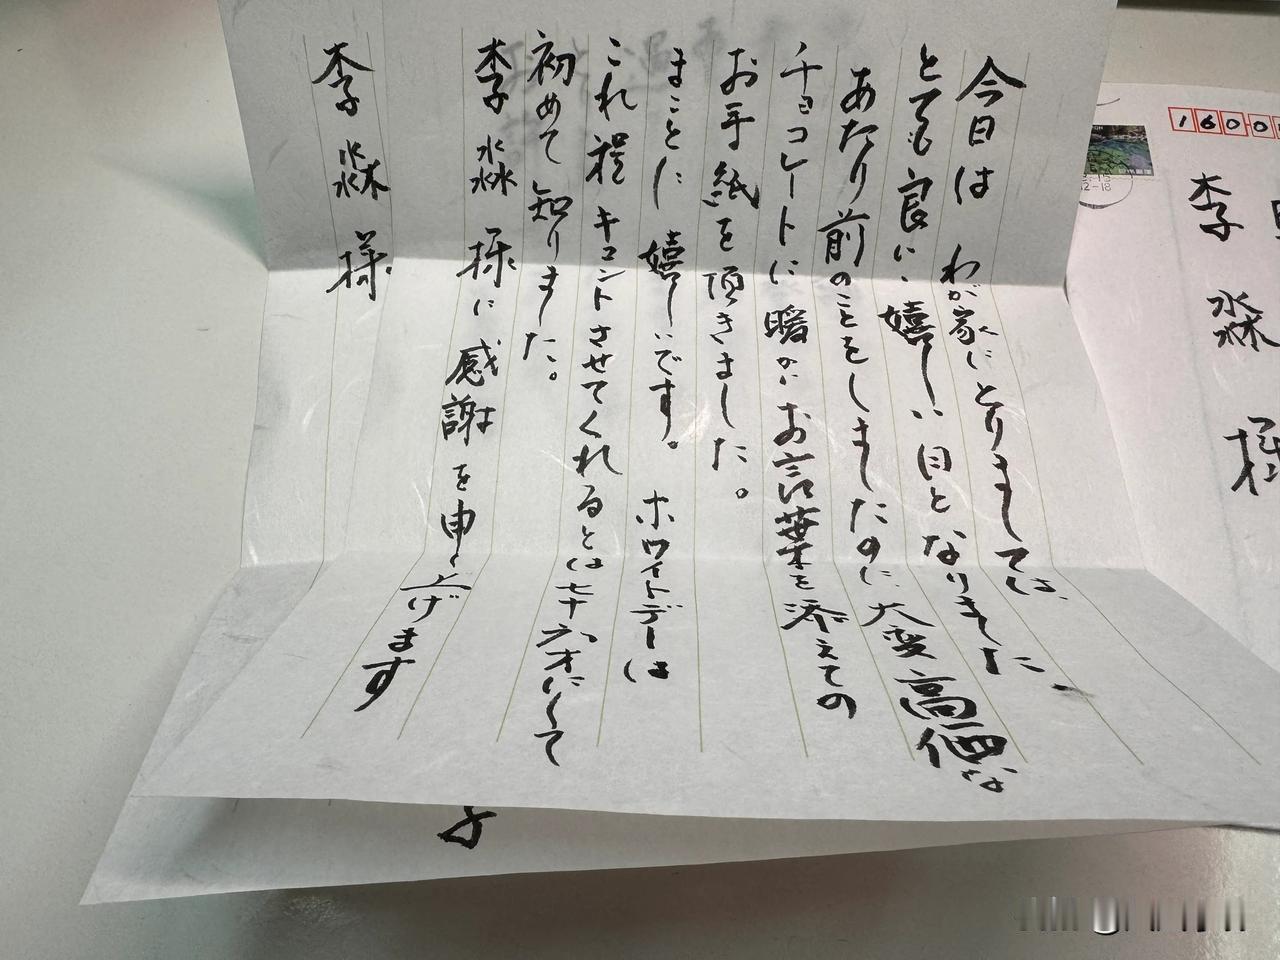 今日は わが家にとりましては、
とても良い、嬉しい日となりました、
あたり前のことをしましたのに、大変高価な
チョコレートに暖かいお言葉を添えての
お手紙を頂きました。
まことに嬉しいです。 ホワイトデーは
これ程キュントさせてくれるとは七十六才にして
初めて知りました。
李淼様に感謝を申し上げます
李淼様
子
1600
李淼様
12-18